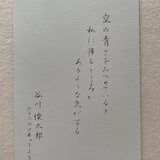 空の青さをみつめていると
私に帰るところが
あるような気がする
谷川俊太郎